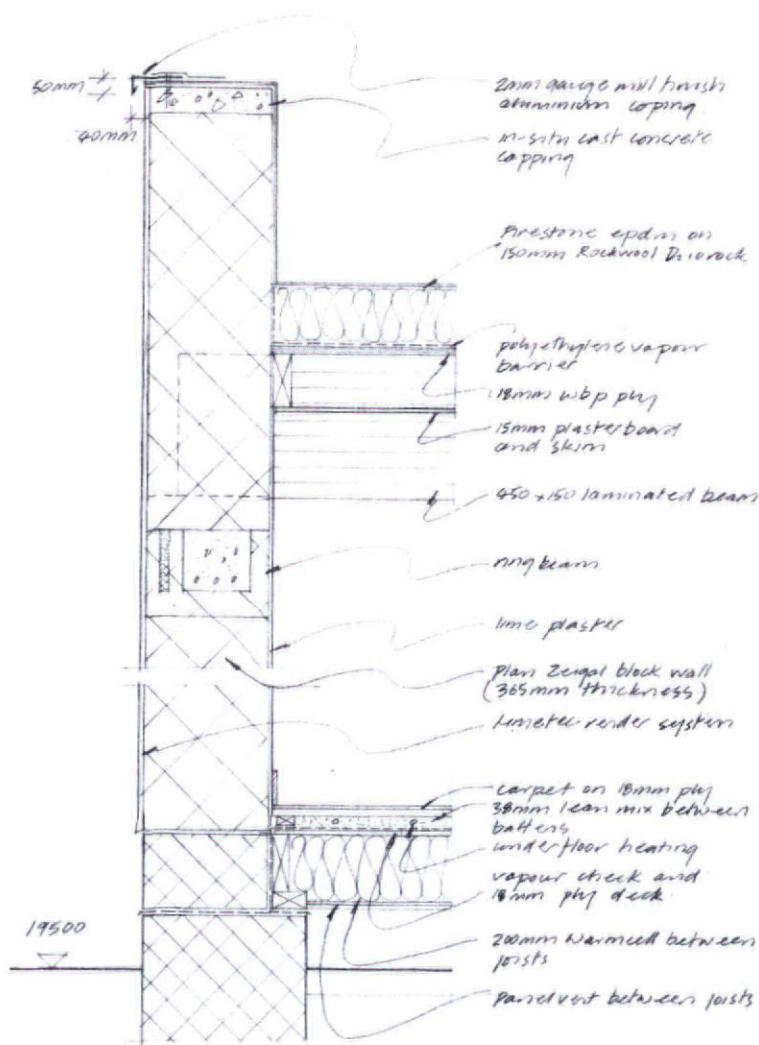 50mm
40mm
2mm gauge mill finish
aluminium coping
in-situ cast concrete
capping
Firestone epdm on
150mm Rockwool Durorock
polyethylene vapour
barrier
18mm wbp ply
15mm plasterboard
and skim
450 x 150 laminated beam
ring beam
lime plaster
plan Zeigal block wall
(365mm thickness)
Limetec render system
carpet on 18mm ply
38mm lean mix between
battens
underfloor heating
vapour check and
18mm ply deck
200mm Warmcell between
joists
Panelvent between joists
19500